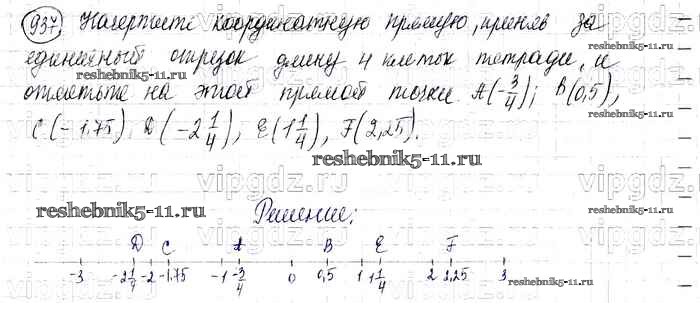 937. Начертите координатную прямую, приняв за
единичный отрезок длину 4 клеток тетради, и
отметьте на этой прямой точки A(-3/4); B(0,5),
C(-1,75) D(-2 1/4), E(1 1/4), F(2,25).
reshebnik5-11.ru
reshebnik5-11.ru
vipgdz.ru
reshebnik5-11.ru
Решение:
D C A B E F
-3 -2 1/4 -2 -1,75 -1 -3/4 0 0,5 1 1 1/4 2 2,25 3
reshebnik5-11.ru